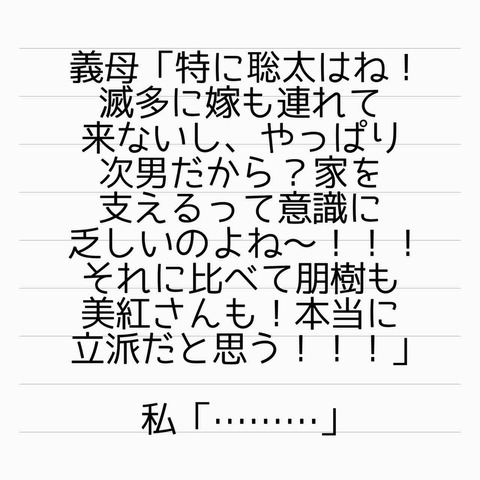 義母「特に聡太はね！
滅多に嫁も連れて
来ないし、やっぱり
次男だから？家を
支えるって意識に
乏しいのよね〜！！！
それに比べて朋樹も
美紅さんも！本当に
立派だと思う！！！」
私「………」